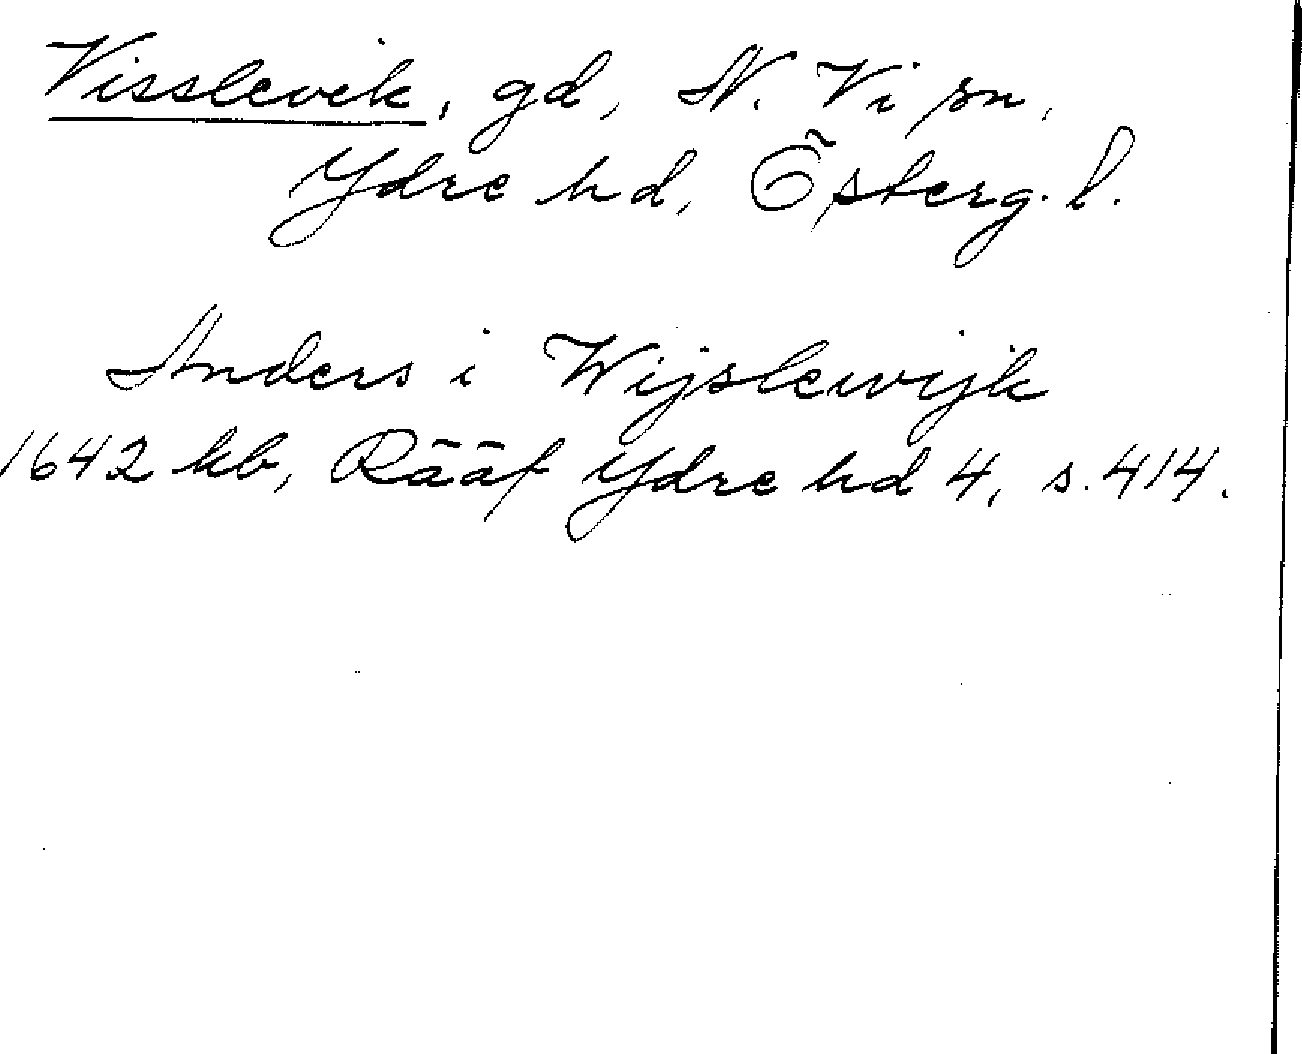 Visslevik, gd, N. Vi sn,
Ydre hd, Österg. l.
Anders i Wijslewijk
1642 kb, Rääf Ydre hd 4, s. 414.